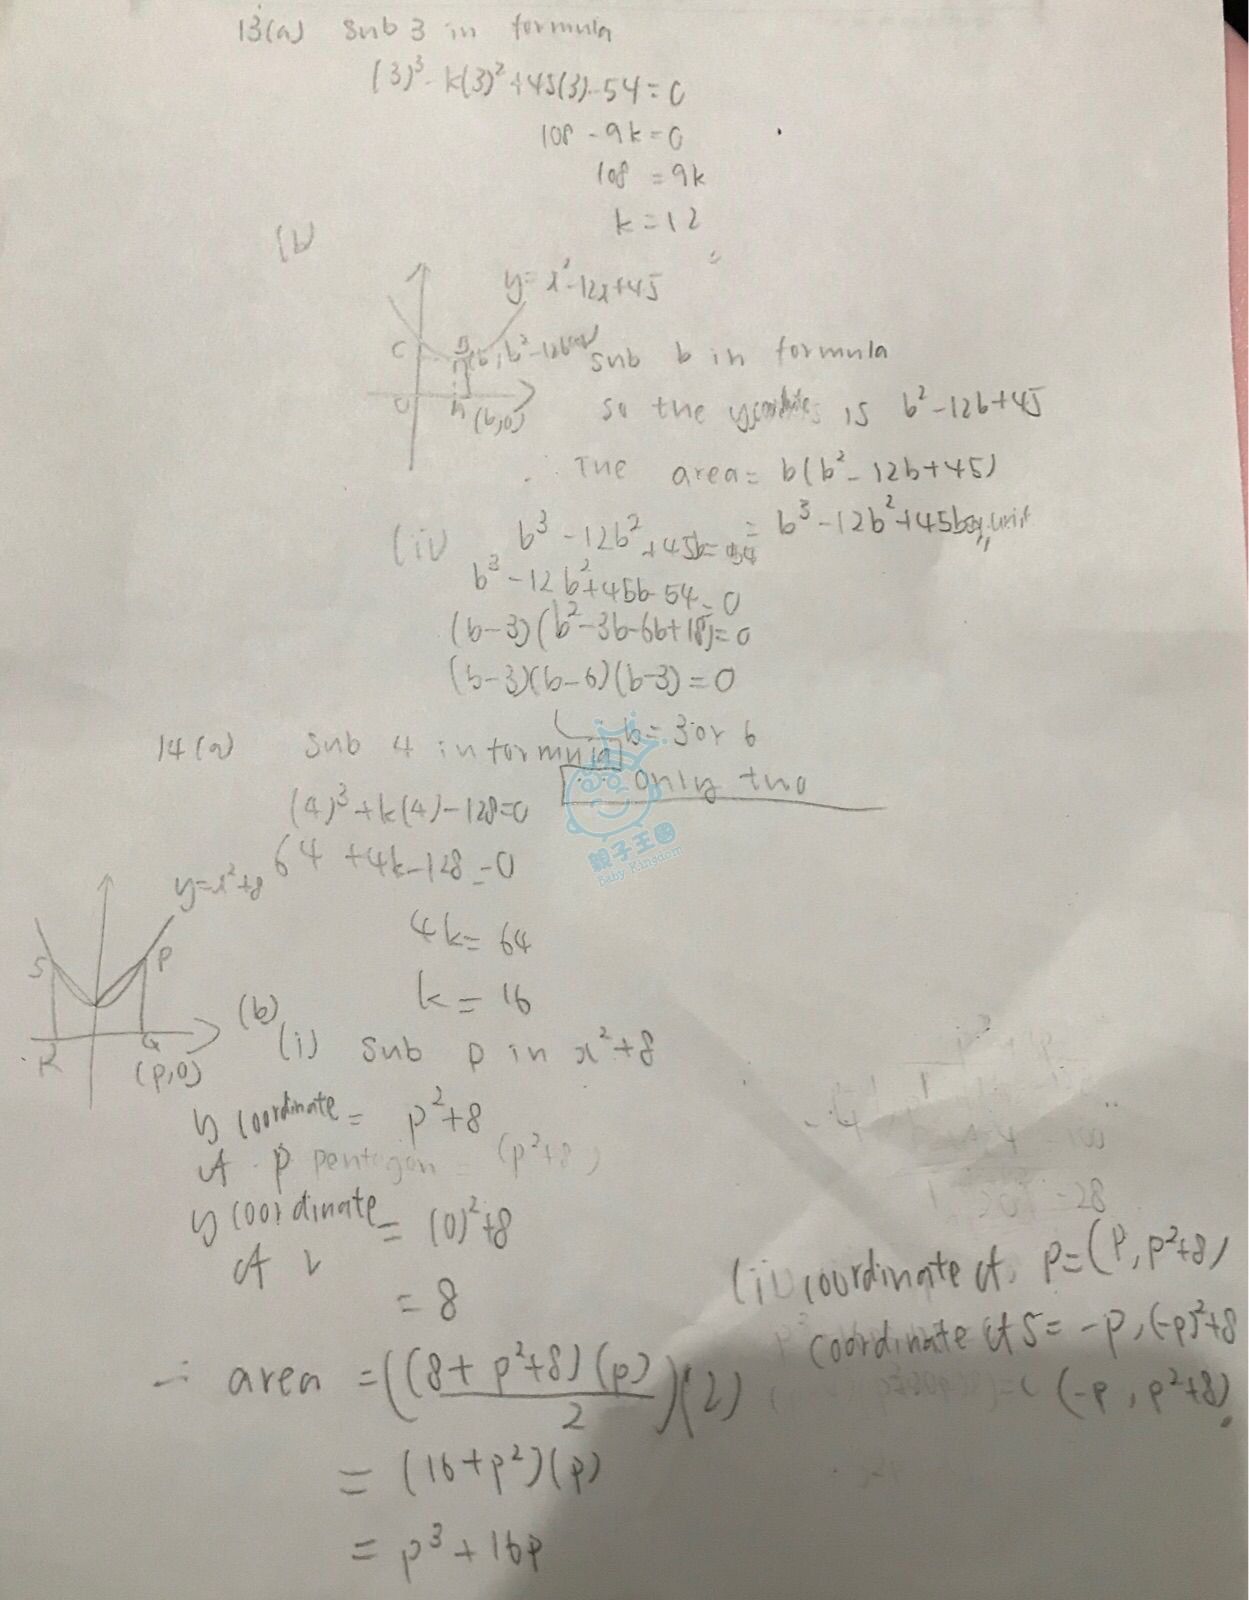 13(a) sub 3 in formula
(3)³ - k(3)² + 45(3) - 54 = 0
108 - 9k = 0
108 = 9k
k = 12
(b)
y = x² - 12x + 45
C
B
(b, b² - 12b + 45)
O
A
(b,0)
sub b in formula
so the y coordinates is b² - 12b + 45
The area = b(b² - 12b + 45)
= b³ - 12b² + 45b sq. unit
(ii) b³ - 12b² + 45b = 54
b³ - 12b² + 45b - 54 = 0
(b-3)(b² - 3b - 6b + 18) = 0
(b-3)(b-6)(b-3) = 0
b = 3 or 6
∴ only two
14(a) sub 4 in formula
(4)³ + k(4) - 128 = 0
64 + 4k - 128 = 0
4k = 64
k = 16
y = x² + 8
S
P
R
Q
(p,0)
(b)
(i) sub p in x² + 8
y coordinate = p² + 8
of p pentagon = (p² + 8)
y coordinate = (0)² + 8
of
= 8
∴ area = ((8 + p² + 8)(p) / 2)(2)
= (16 + p²)(p)
= p³ + 16p
(ii) coordinate of p = (p, p² + 8)
coordinate of S = -p, (-p)² + 8
(-p, p² + 8)
= 28
親子王國
Baby Kingdom